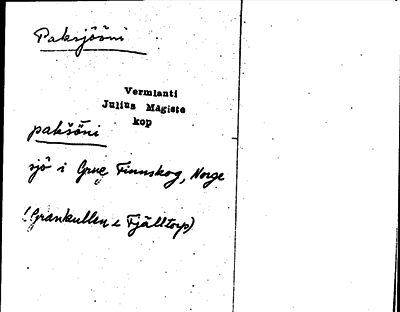 Paksjööni
Vermlanti
Julius Mägiste
kop
pakšöni
sjö i Grue Finnskog, Norge
(Grankullen i Fjälltorp)